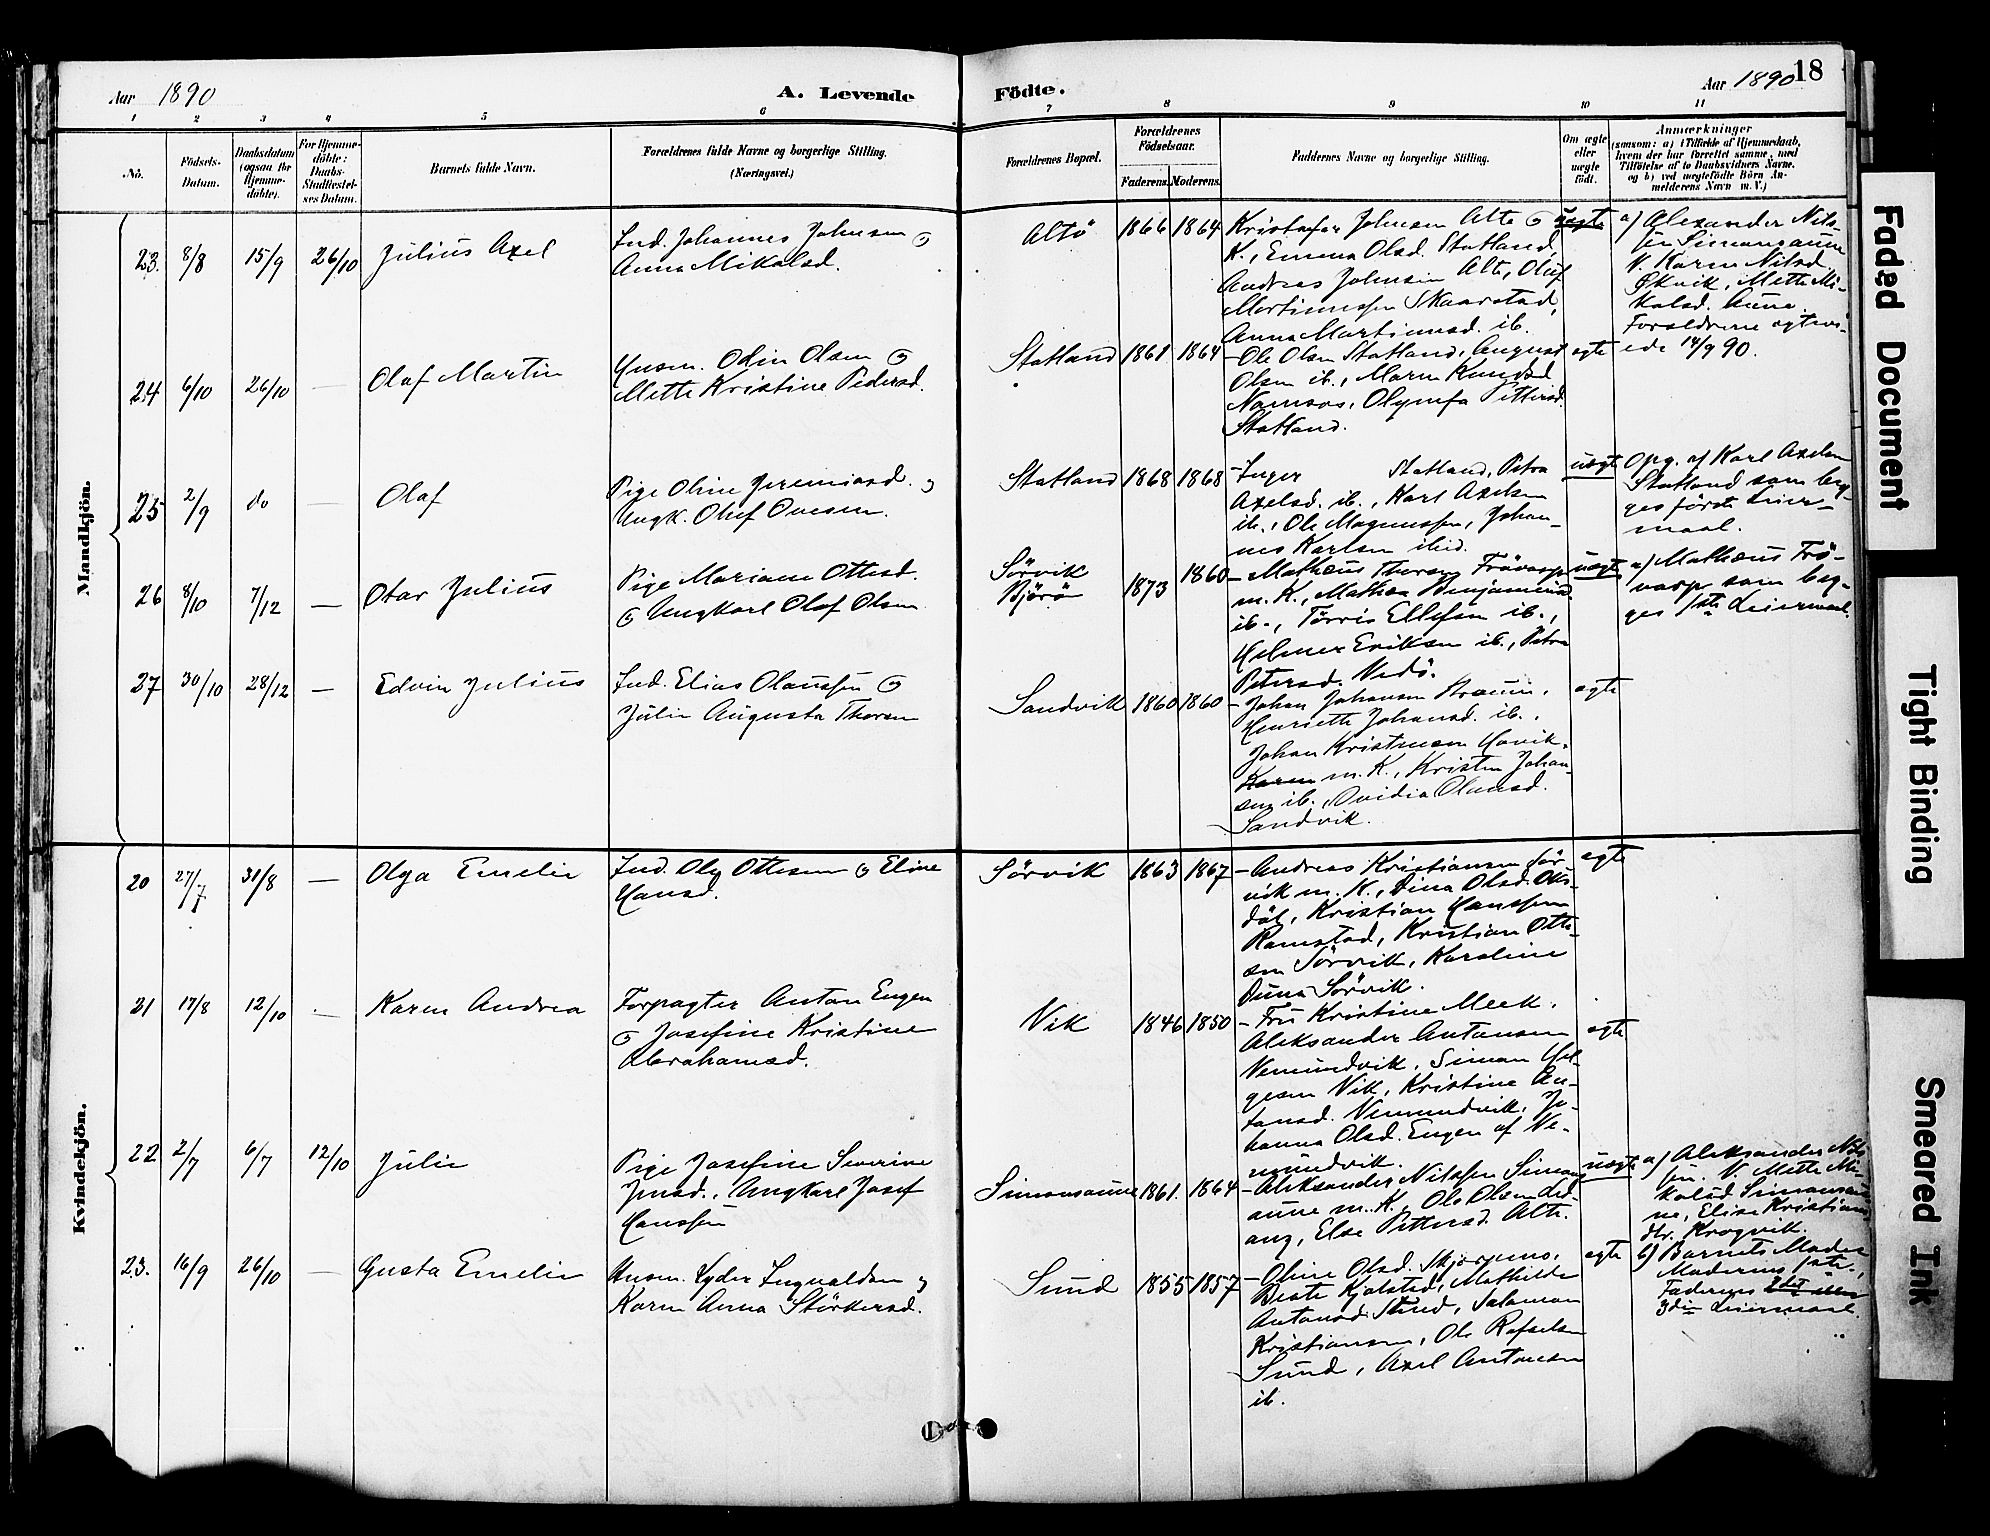 Aar 1890
A. Levende
Födte.
Aar 1890
18
1 2 3 4 5 6 7 8 9 10 11
No.
Födsels-
Datum.
Daabsdatum
(ogsaa for
Hjemme-
döbte).
For Hjemme-
döbte:
Daabs-
Stadfæstel-
ses Datum.
Barnets fulde Navn.
Forældrenes fulde Navne og borgerlige Stilling.
(Næringsvei.)
Forældrenes Bopæl.
Forældrenes
Födselsaar.
Faderens.
Moderens.
Faddernes Navne og borgerlige Stilling.
Om ægte
eller
uægte
födt.
Anmærkninger
(saasom: a) i Tilfælde af Hjemmedaab,
hvem der har forrettet samme, med
Tilföielse af to Daabsvidners Navne,
og b) ved uægtefödte Börn An-
melderens Navn m. V.)
Mandkjön.
23. 8/8 15/9 26/10 Julius Axel
Ind. Johannes Johnsen og
Anna Mikalsd.
Altö 1866 1864
Kristofer Johnsen Alte og
K., Emma Olsd. Statland,
Andreas Johnsen Alte, Oluf
Martinussen Skaarstad,
Anna Martinusd. ib.
uægte
a) Alexander Nils-
sen Simonsaune
V. Karen Nilsd.
Økvik, Mette Mi-
kalsd. Aune.
Forældrene ægtevi-
ede 14/9 90.
24 6/10 26/10 — Olaf Martin
Husm. Odin Olsen og
Mette Kristine Pedersd.
Statland 1861 1864
– Ole Olsen Statland, August
Olsen ib., Maren Knudsd
Namsos, Olymfa Pettersd.
Statland.
ægte
25 2/9 do — Olaf
Pige Oline Jeremiasd. og
Ungk. Oluf Ovesen.
Statland 1868 1868
– Inger Statland, Petra
Axelsd. ib., Karl Axelsen
ib., Ole Magnussen, Johan-
nes Karlsen ibid.
uægte
Opg. af Karl Axelsen
Statland som beg-
ges förste Leier-
maal.
26 8/10 7/12 — Otar Julius
Pige Mariane Ottesd.
og Ungkarl Olaf Olsen
Sörvik
Björö
1873 1860
– Mathæus Thorsen Frövarp
m. K., Mathea Benjaminsd.
ib., Törris Ellefsen ib.,
Helmer Eriksen ib., Petra
Petersd. Vedö.
uægte
a) Mathæus Frö-
varp som beg-
ges 1ste Leiermaal.
27 30/10 28/12 — Edvin Julius
Ind. Elias Olaussen og
Julie Augusta Thorsen
Sandvik 1860 1860
– Johan Johansen Braum,
Henriette Johansd. ib.,
Johan Kristensen Hovik,
Karen m. K., Kristen Johan-
sen ib., Ovidia Olausd.
Sandvik.
ægte
Kvindekjön.
20 27/7 31/8 — Olga Emelie
Ind. Ole Ottesen og Eline
Hansd.
Sörvik 1863 1867
– Andreas Kristiansen Sör-
vik m. K., Dina Olsd. Oks-
döl, Kristian Hanssen
Ramstad, Kristian Otte-
sen Sörvik, Karoline
Duna Sörvik.
ægte
21 17/8 12/10 — Karen Andrea
Forpagter Anton Engen
og Josefine Kristine
Abrahamsd.
Vik 1846 1850
– Fru Kristine Meek,
Aleksander Antonsen
Vemundvik, Simon Hel-
gesen Vik, Kristine An-
tonsd. Vemundvik, Jo-
hanna Olsd. Engen af Ve-
mundvik.
ægte
22 2/7 6/7 12/10 Julie
Pige Josefine Severine
Jensd., Ungkarl Josef
Hanssen
Simonsaune 1861 1864
– Aleksander Nilssen Simons-
aune m. K., Ole Olsen Led-
ang, Else Pettersd. Alte.
uægte
a) Aleksander Nils-
sen. V. Mette Mi-
kalsd. Simonsau-
ne, Elise Kristians-
dtr. Krogvik.
b) Barnets Moder
Moderens 1ste,
Faderens 2det
3die Leiermaal.
23. 16/9 26/10 — Gusta Emelie
Husm. Peder Ingvaldsen og
Karen Anna Störkersd.
Sund 1855 1857
– Oline Olsd. Skjörumo,
Beate Kjölstad, Mathilde
Antonsd. Sund, Salamon
Kristiansen, Ole Rafaelsen
Sund, Axel Antonsen
ib.
ægte
Faded Document
Tight Binding
Smeared Ink